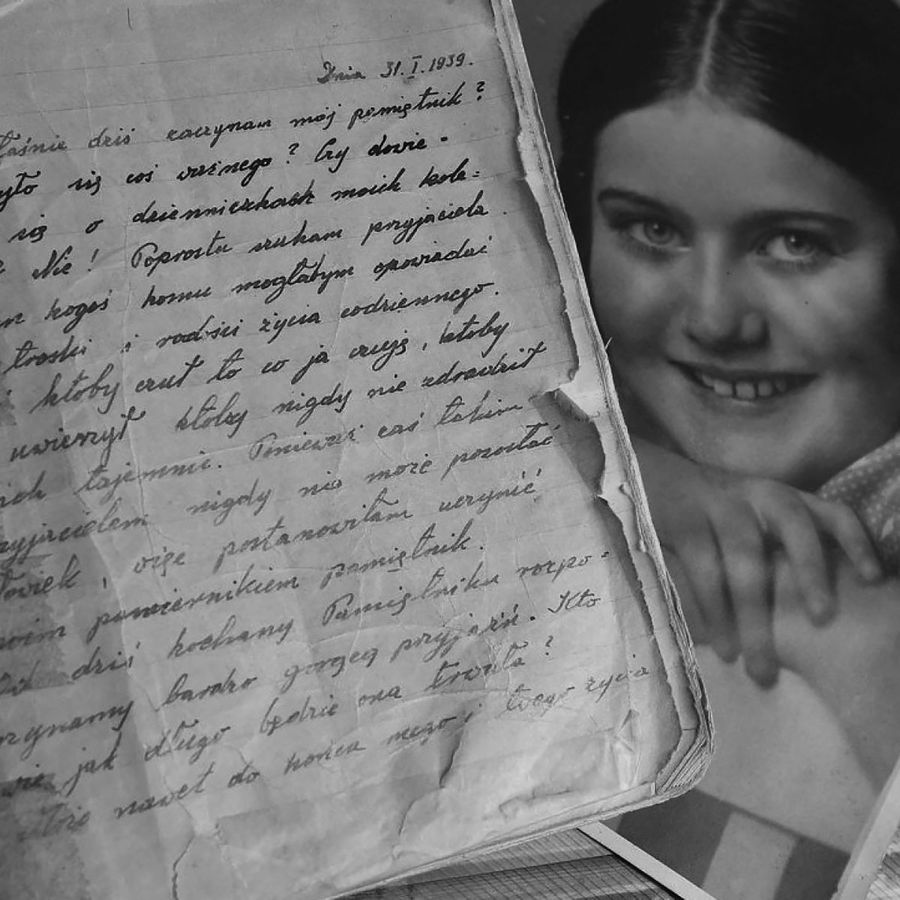 Dnia 31.I.1939.
dziś zaczynam mój pamiętnik?
się coś ważnego? Czy dowie-
się o dzienniczkach moich kole-
Nie! Poprostu szukam przyjaciela.
kogoś komu mogłabym opowiadać
troski i radości życia codziennego.
któby czuł to co ja czuję, któby
uwierzył któby nigdy nie zdradził
tajemnic. Ponieważ zaś takim
przyjacielem nigdy nie może pozostać
więc postanowiłam uczynić
powiernikiem pamiętnik.
dziś kochany Pamiętniku rozpo-
bardzo gorącą przyjaźń. Kto
jak długo będzie ona trwała?
nawet do końca mego i twego życia